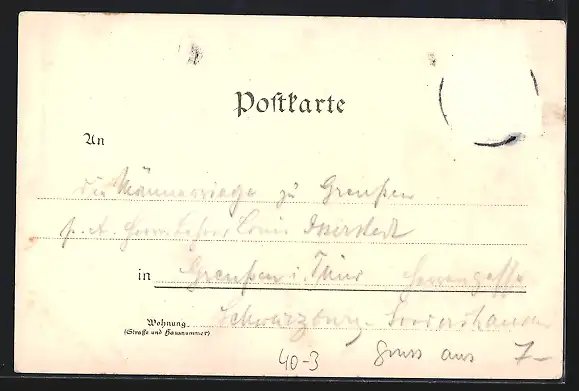 Postkarte
An
die Männerriege zu Greußen
p. A. Herrn Louis
in Greußen i. Thür
Wohnung Schwarzburg-Sondershausen
(Straße und Hausnummer)
40-3 Gruss aus 7-